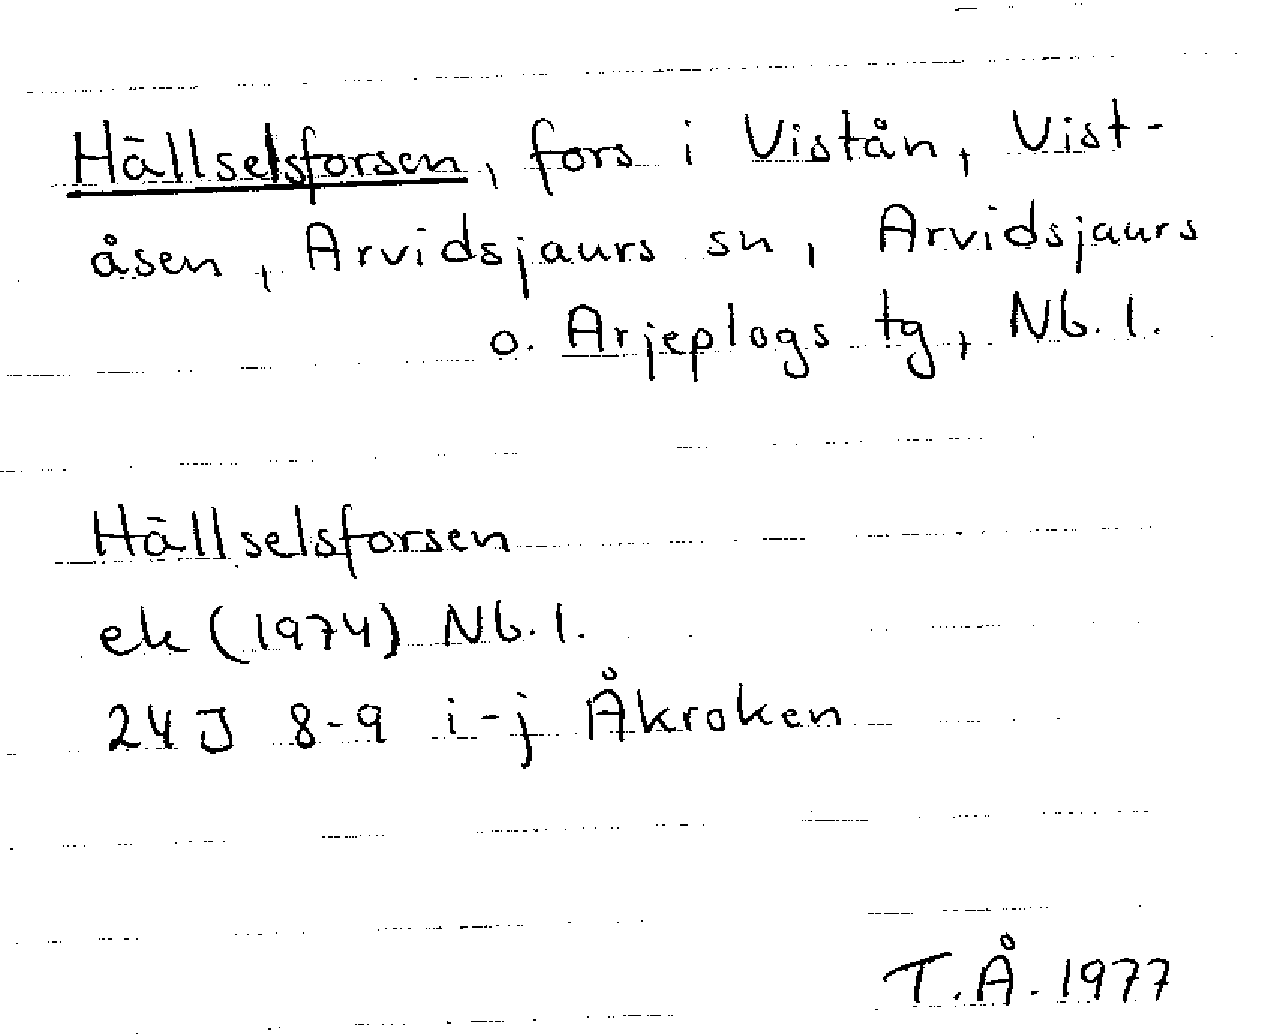 Hällselsforsen, fors i Vistån, Vist-
åsen, Arvidsjaurs sn, Arvidsjaurs
o. Arjeplogs tg, Nb. l.
Hällselsforsen
ek (1974) Nb. l.
24 J 8-9 i-j Åkroken
T.Å. 1977